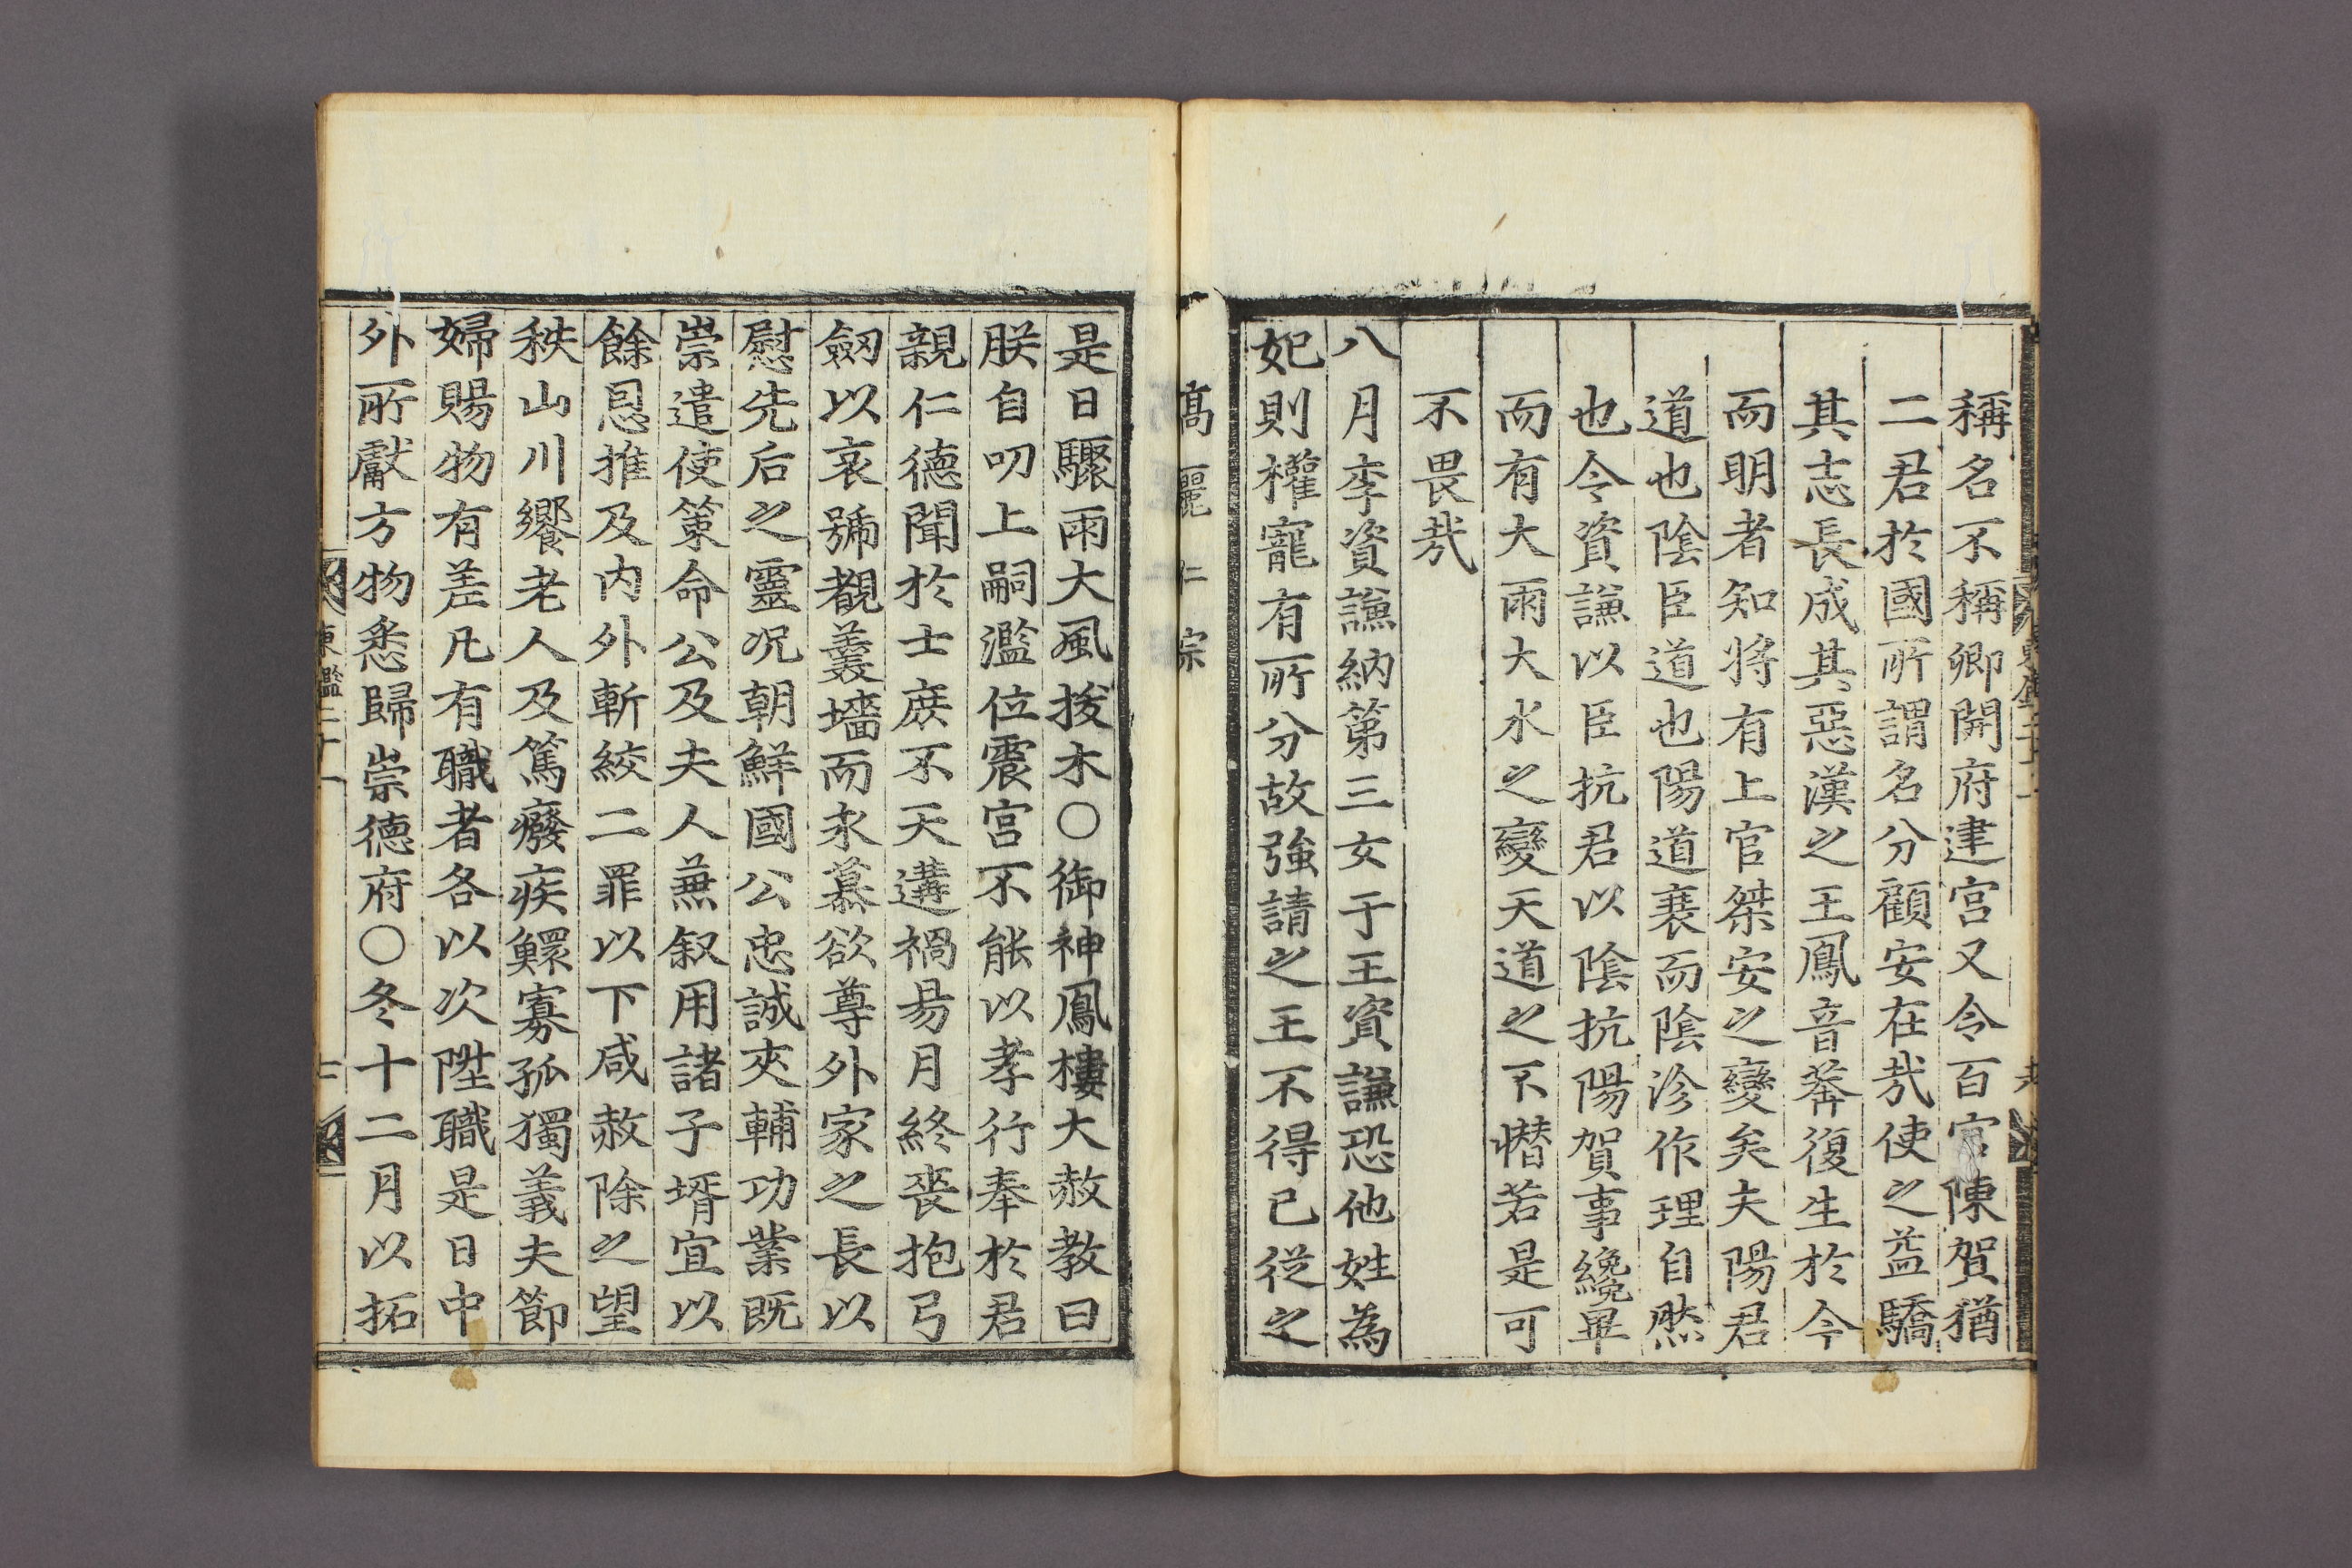 稱名不稱卿開府建宮又令百官陳賀猶
二君於國所謂名分顧安在㢤使之益驕
其志長成其惡漢之王鳳音莽復生於今
而明者知將有上官桀安之變矣夫陽君
道也陰臣道也陽道衰而陰沴作理自然
也今資謙以臣抗君以陰抗陽賀事纔畢
而有大雨大水之變天道之不憯若是可
不畏㢤
八月李資謙納第三女于王資謙恐他姓為
妃則權寵有所分故強請之王不得已從之
高麗 仁宗
是日驟雨大風拔木○御神鳳樓大赦教曰
朕自叨上嗣濫位震宮不能以孝行奉於君
親仁德聞於士庶不天遘禍昜月終喪抱弓
劒以哀號覩羹墻而永慕欲尊外家之長以
慰先后之靈况朝鮮國公忠誠夾輔功業既
崇遣使策命公及夫人兼叙用諸子壻宜以
餘恩推及内外斬絞二罪以下咸赦除之望
秩山川饗老人及篤癈疾鰥寡孤獨義夫節
婦賜物有差凡有職者各以次陞職是日中
外所獻方物悉歸崇德府○冬十二月以拓
東鑑二十一